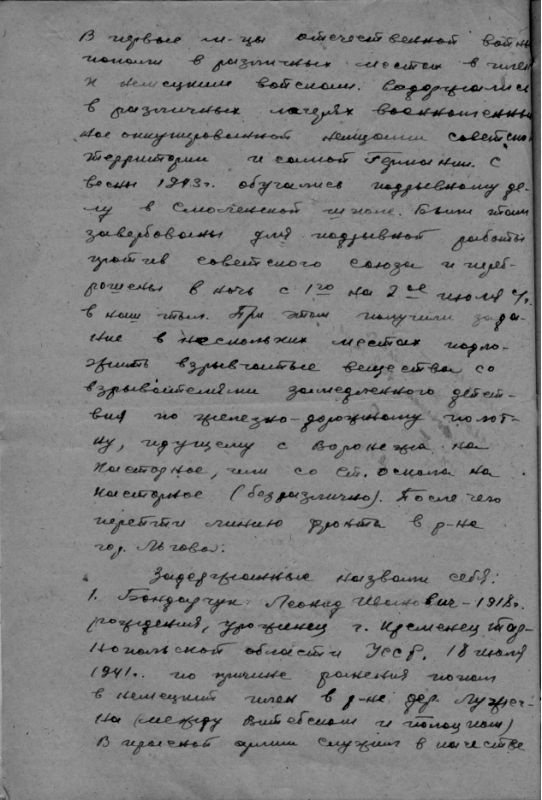 В первые м-цы отечественной войны
попали в различных местах в плен
к немецким войскам. Содержались
в различных лагерях военнопленных
на оккупированной немцами советской
территории и самой Германии. С
весны 1943 г. обучались подрывному де-
лу в Смоленской школе. Были там
завербованы для подрывной работы
против советского союза и переб-
рошены в ночь с 1го на 2ое июля с/г.
в наш тыл. При этом получили зада-
ние в нескольких местах подло-
жить взрывчатые вещества со
взрывателями замедленного дейст-
вия по железно-дорожному полот-
ну, идущему с Воронежа на
Касторное, или со ст. Оскола на
Касторное (безразлично). После чего
перейти линию фронта в р-не
гор. Льгова.
Задержанные назвали себя:
1. Бондарчук Леонид Иванович - 1918 г.
рождения, уроженец г. Кременец Тар-
нопольской области УССР, 18 июля
1941 г. по причине ранения попал
в немецкий плен в р-не дер.
(между Витебском и Полоцком)
В красной армии служил в качестве